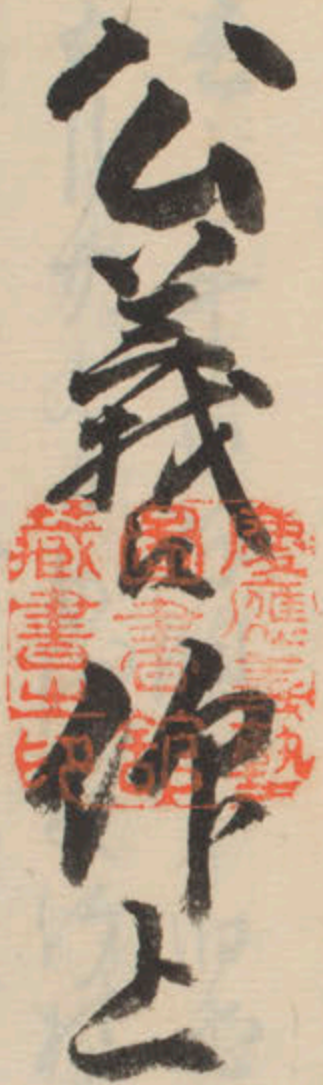 公義仰上
慶應義塾
圖書館
藏書之印